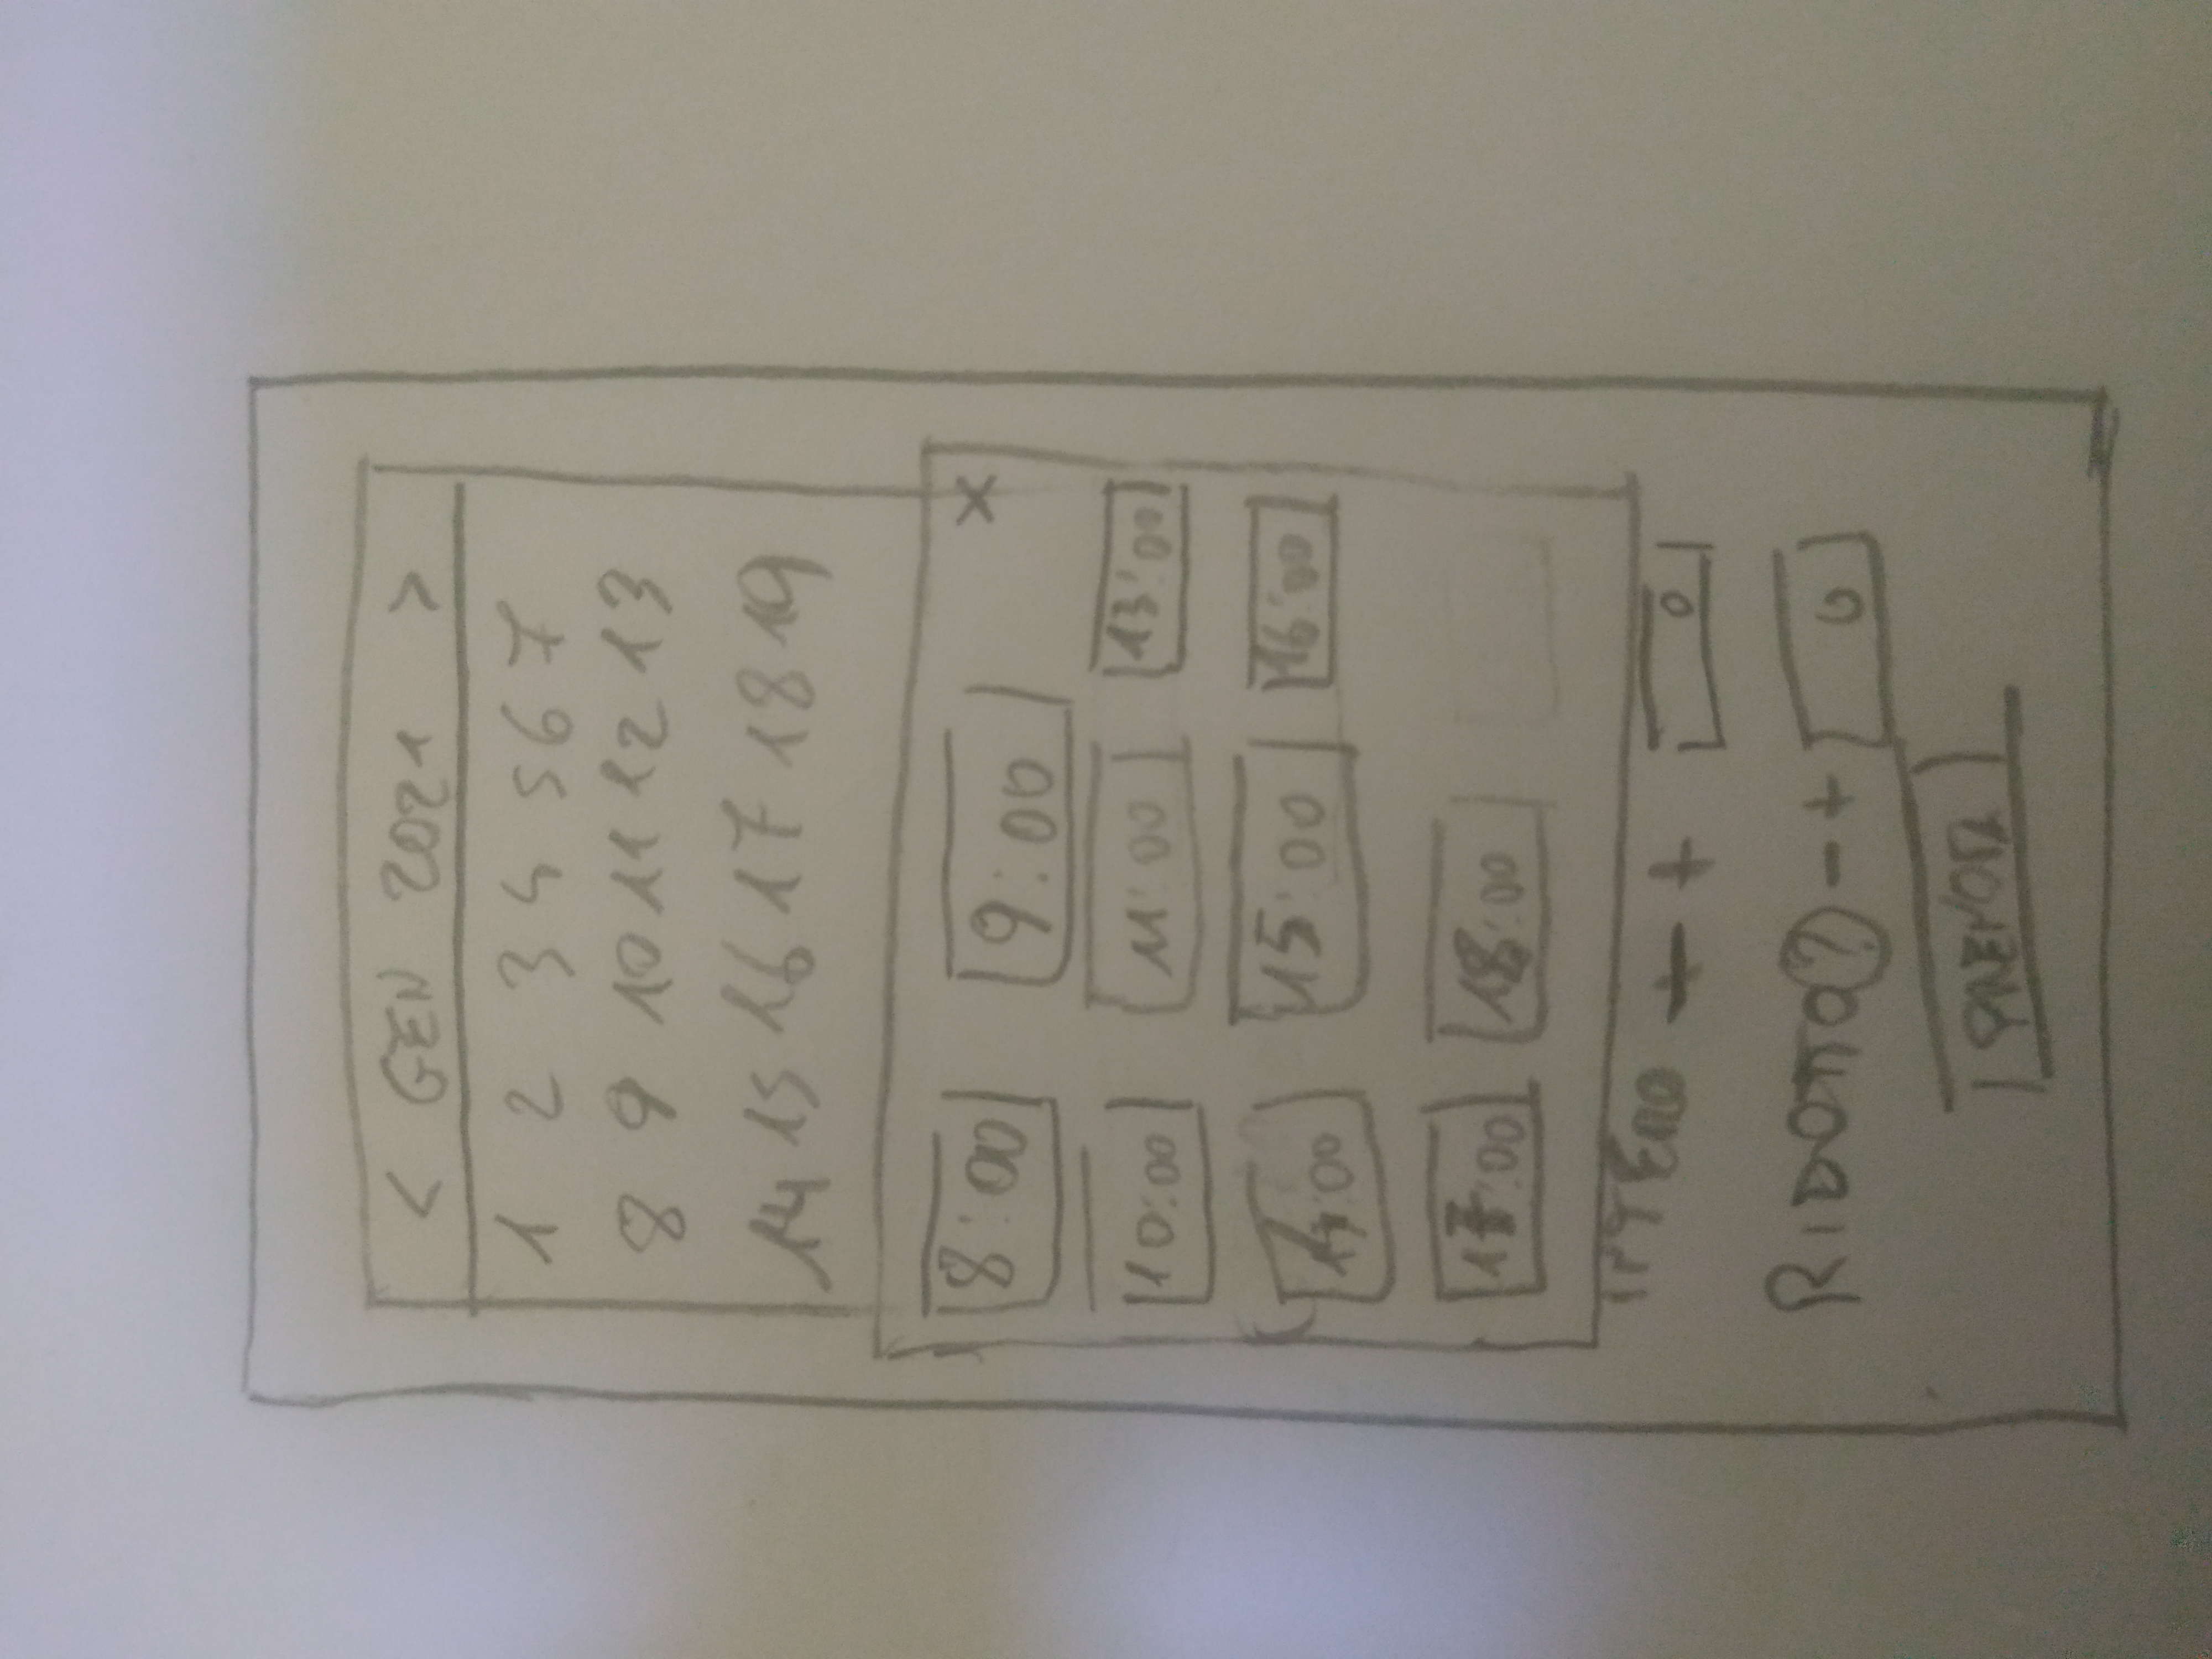 < GEN 2021 >
1 2 3 4 5 6 7
8 9 10 11 12 13
14 15 16 17 18 19
8:00 9:00 X
10:00 11:00 13:00
14:00 15:00 16:00
17:00 18:00
INTERO - + 0
RIDOTTO ? - + 0
PRENOTA